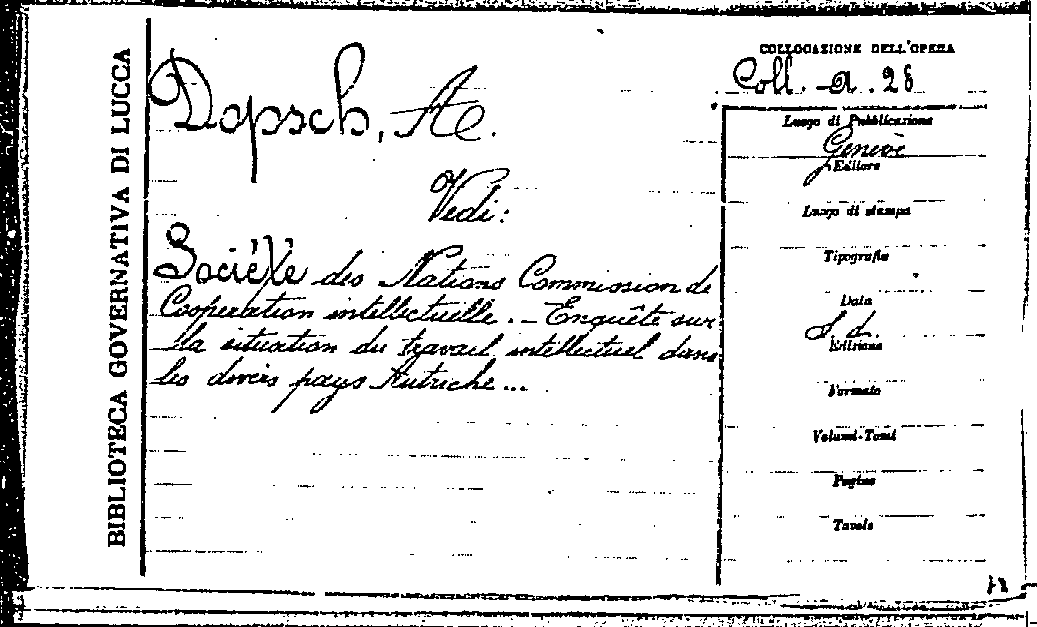 BIBLIOTECA GOVERNATIVA DI LUCCA
Dopsch, A.
Vedi:
Société des Nations Commission de
Cooperation intellectuelle. - Enquête sur
la situation du travail intellectuel dans
les divers pays Autriche...
COLLOCAZIONE DELL'OPERA
Coll. - A. 28
Luogo di Pubblicazione
Genevè
Editore
Luogo di stampa
Tipografia
Data
S. d.
Edizione
Formato
Volumi-Tomi
Pagine
Tavole